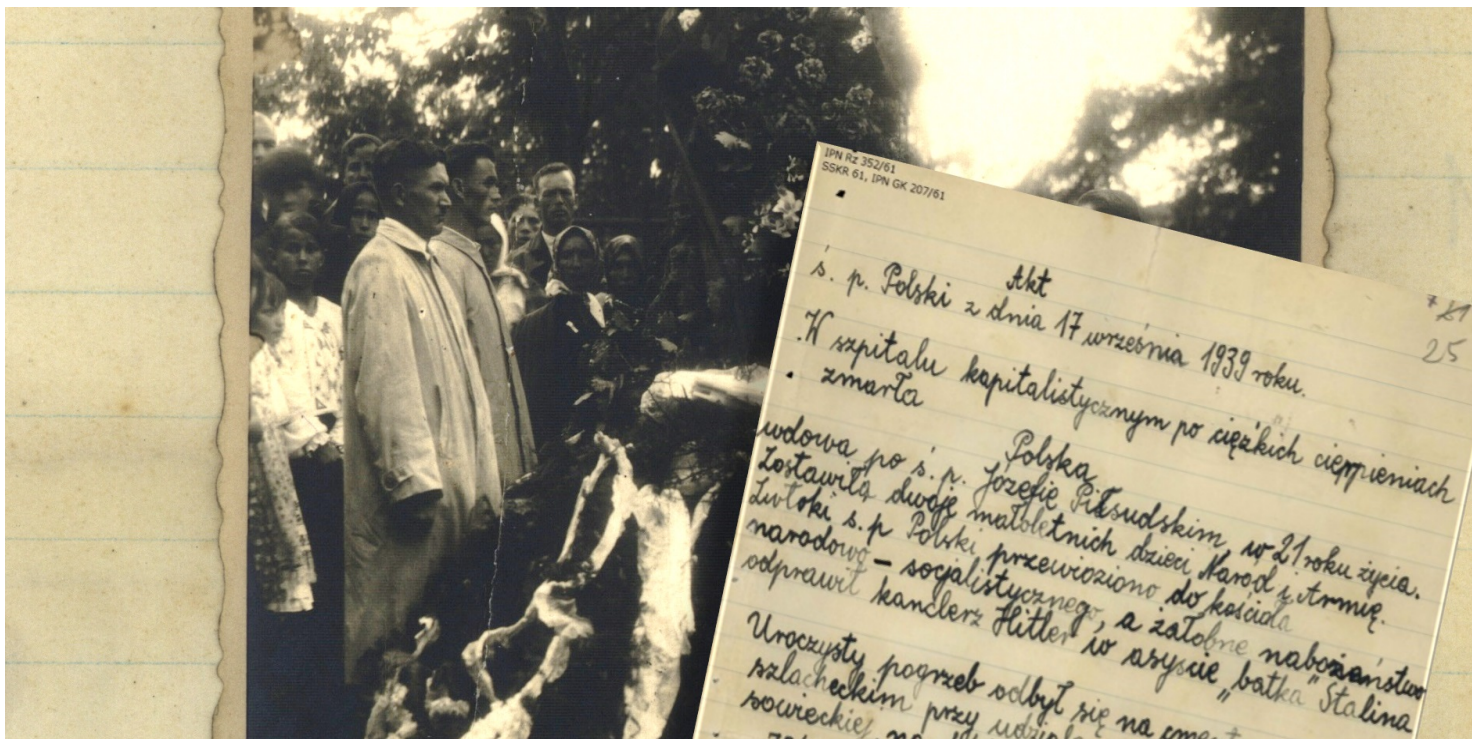 IPN Rz 352/61
SSKR 61, IPN GK 207/61
Akt
ś. p. Polski z dnia 17 września 1939 roku.
25
W szpitalu kapitalistycznym po ciężkich cierpieniach
zmarła
Polska
wdowa po ś. p. Józefie Piłsudskim, w 21 roku życia.
Zostawiła dwoje małoletnich dzieci Naród i Armię.
Zwłoki ś. p Polski przewieziono do kościoła
narodowo-socjalistycznego, a żałobne nabożeństwo
odprawił kanclerz Hitler w asyście "batka" Stalina
Uroczysty pogrzeb odbył się na
szlacheckim przy
sowieckiej